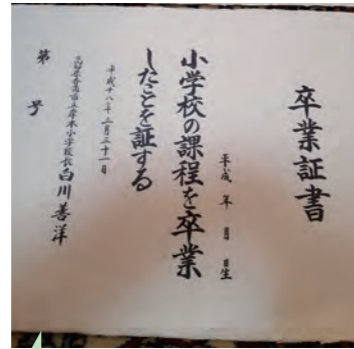 卒業証書
平成 年 月 日生
小学校の課程を卒業
したことを証する
平成十八年三月三十一日
高知県香南市立岸本小学校長 白川善洋
第 号